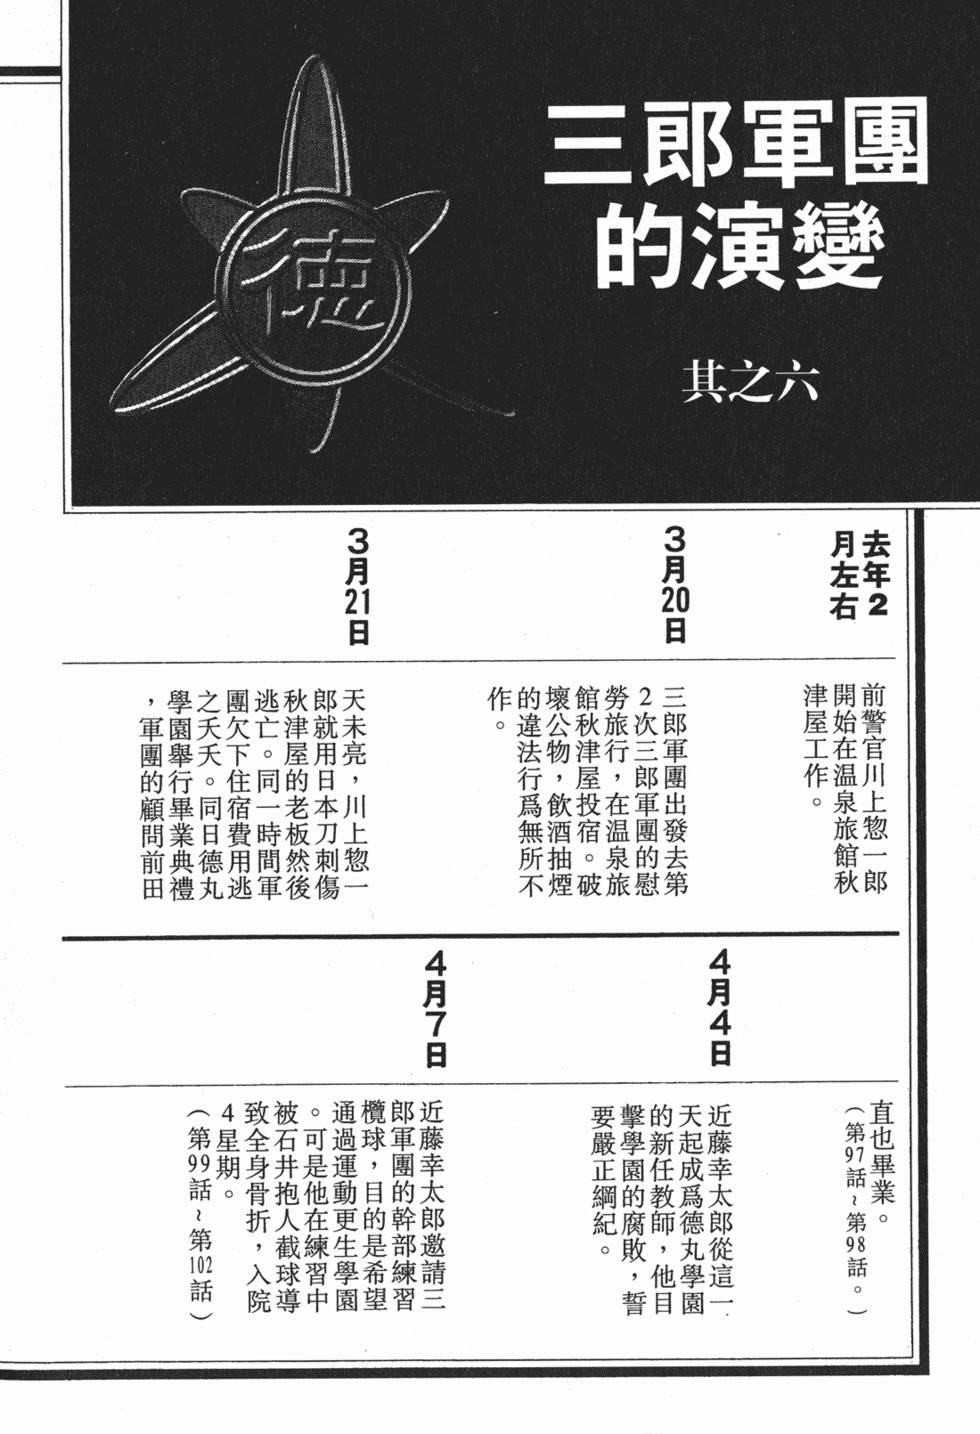 三郎軍團
的演變
其之六
德
去年2
月左右
前警官川上惣一郎
開始在温泉旅館秋
津屋工作。
3月20日
三郎軍團出發去第
2次三郎軍團的慰
勞旅行，在温泉旅
館秋津屋投宿。破
壞公物，飲酒抽煙
的違法行爲無所不
作。
3月21日
天未亮，川上惣一
郎就用日本刀刺傷
秋津屋的老板然後
逃亡。同一時間軍
團欠下住宿費用逃
之夭夭。同日德丸
學園舉行畢業典禮
，軍團的顧問前田
直也畢業。
（第97話~第98話。）
4月4日
近藤幸太郎從這一
天起成爲德丸學園
的新任教師，他目
擊學園的腐敗，誓
要嚴正綱紀。
4月7日
近藤幸太郎邀請三
郎軍團的幹部練習
欖球，目的是希望
通過運動更生學園
。可是他在練習中
被石井抱人截球導
致全身骨折，入院
4星期。
（第99話~第102話）